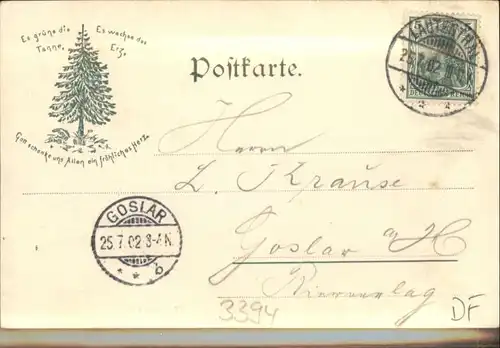 Es grüne die Es wachse das
Tanne, Erz,
Gott schenke uns Allen ein fröhliches Herz.
Postkarte.
LAUTENTHAL
25.7.02
DEUTSCHES REICH
Herrn
L. Krause
Goslar a/H
GOSLAR
25.7.02 3-4N.
* * b
3394
DF